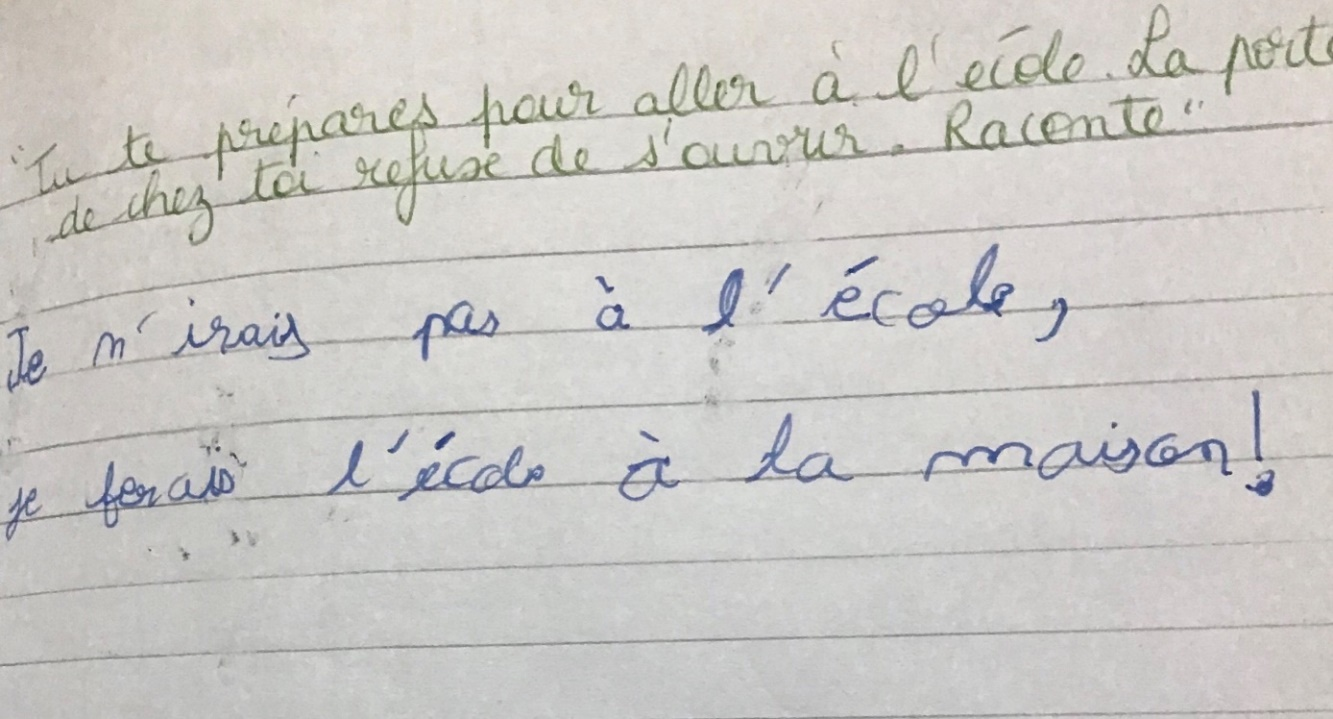 "Tu te prépares pour aller à l'école. La porte
de chez toi refuse de s'ouvrir. Raconte"
Je n'irais pas à l'école,
je ferais l'école à la maison!